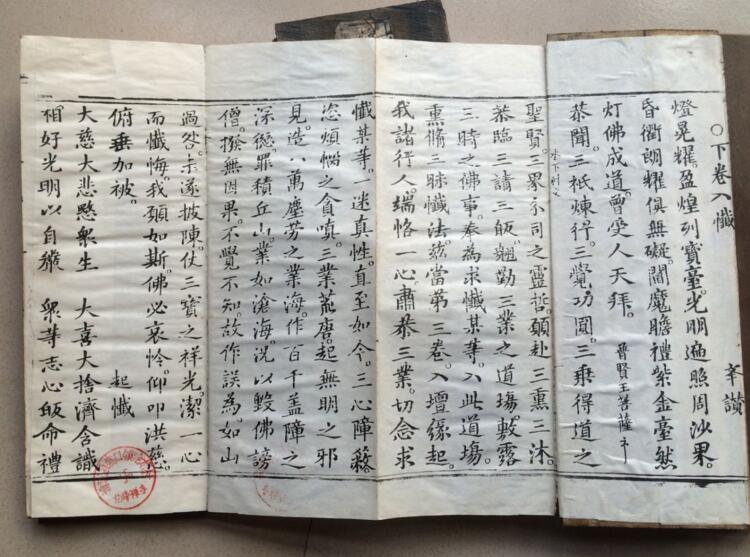 ○下卷入懺 举讃
燈晃耀。盈煌列寳臺。光明遍照周沙界。
昏衢朗耀俱無礙。閻魔瞻禮紫金臺。然
灯佛成道。曾受人天拜。 普賢王菩薩
恭聞。三祇煉行。三覺功圓。三乗得道之
聖賢。三界示司之靈哲。願赴三熏三沐。
恭臨三請三皈。翹勤三業之道塲。敷露
三時之佛事。奉為求懺某等。入此道塲。
熏脩三昧懺法。兹當第三卷。入壇缘起。
我諸行人。端恪一心。肅恭三業。切念求
懺某等。一迷真性。直至如今。三心障蔽
恣煩惱之貪嗔。三業荒唐。起無明之邪
見。造八萬塵劳之業海。作百千盖障之
深愆。罪積丘山。業如滄海。况以毀佛謗
僧。撥無因果。不覺不知。故作誤為。如山
過咎。未遂披陳。仗三寶之祥光。潔一心
而懺悔。我願如斯。佛必哀怜。仰叩洪慈。
俯垂加被。 起懺
大慈大悲愍衆生 大喜大捨濟含識
相好光明以自嚴 衆等志心皈命禮